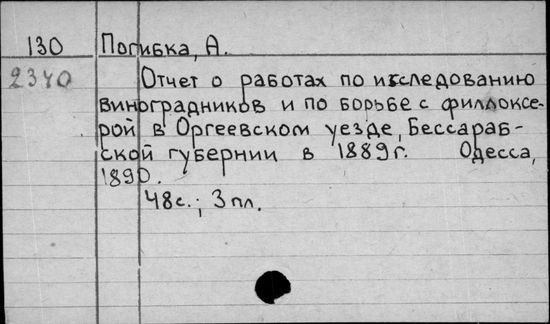 130 Погибка, А.
2340 Отчет о работах по исследованию
виноградников и по борьбе с филлоксе-
рой в Оргеевском уезде, Бессараб-
ской губернии в 1889г. Одесса,
1890.
48с.; 3 пл.